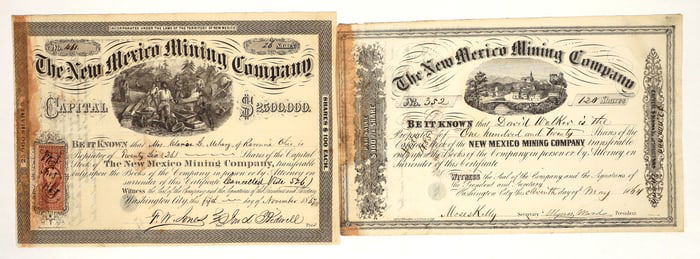 INCORPORATED UNDER THE LAWS OF THE TERRITORY OF NEW MEXICO
No. 461
26 SHARES
The New Mexico Mining Company
CAPITAL $2500,000.
SHARES $100 EACH.
BE IT KNOWN that Mrs.
of Ravenna Ohio, is
Proprietor of Twenty Six (26) Shares of the Capital
Stock of The New Mexico Mining Company, transferable
only upon the Books of the Company in person or by Attorney on
surrender of this Certificate
Witness the Seal of the Company and the Signatures of the President and Secretary
Washington City, this fifth day of November 1867
The New Mexico Mining Company
No. 352
120 Shares
BE IT KNOWN that David Walker is the
Proprietor of One Hundred and Twenty Shares of the
Stock of the NEW MEXICO MINING COMPANY transferable
only on the Books of the Company in person or by Attorney on
surrender of this Certificate
WITNESS the Seal of the Company and the Signatures of
the President and Secretary
Washington City, this Eleventh day of May 1864
Moses Kelly Secretary
President